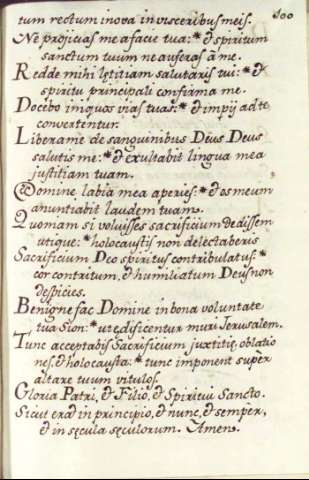 100
tum rectum inova in visceribus meis.
Ne projicias me a facie tua:* & spiritum
sanctum tuum ne auferas â me.
Redde mihi lętitiam salutaris tui:* &
spiritu principali confirma me.
Docebo iniquos vias tuas:* & impij ad te
convertentur.
Libera me de sanguinibus Deus Deus
salutis meę:* & exultabit lingua mea
justitiam tuam.
Domine labia mea aperies:* & os meum
anuntiabit laudem tuam.
Quoniam si voluisses sacrificium dedissem
utique:* holocaustis non delectaberis
Sacrificium Deo spiritus contribulatus:*
cor contritum, & humiliatum Deus non
despicies.
Benigne fac Domine in bona voluntate
tua Sion:* ut ędificentur muri Jerusalem.
Tunc acceptabis Sacrificium justitię, oblatio
nes, & holocausta:* tunc imponent supèr
altare tuum vitulos.
Gloria Patri, & Filio, & Spiritui Sancto.
Sicut erat in principio, & nunc, & sempèr,
& in sęcula sęculorum. Amen.